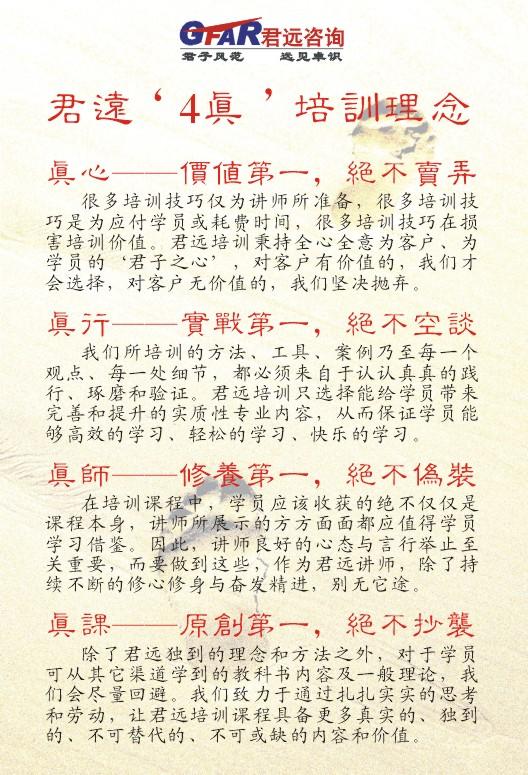 GFAR君远咨询
君子风范 远见卓识
君遠‘4眞’培訓理念
眞心——價值第一，絕不賣弄
很多培训技巧仅为讲师所准备，很多培训技
巧是为应付学员或耗费时间，很多培训技巧在损
害培训价值。君远培训秉持全心全意为客户、为
学员的‘君子之心’，对客户有价值的，我们才
会选择，对客户无价值的，我们坚决抛弃。
眞行——實戰第一，絕不空談
我们所培训的方法、工具、案例乃至每一个
观点、每一处细节，都必须来自于认认真真的践
行、琢磨和验证。君远培训只选择能给学员带来
完善和提升的实质性专业内容，从而保证学员能
够高效的学习、轻松的学习、快乐的学习。
眞師——修養第一，絕不偽裝
在培训课程中，学员应该收获的绝不仅仅是
课程本身，讲师所展示的方方面面都应值得学员
学习借鉴。因此，讲师良好的心态与言行举止至
关重要，而要做到这些，作为君远讲师，除了持
续不断的修心修身与奋发精进，别无它途。
眞課——原創第一，絕不抄襲
除了君远独到的理念和方法之外，对于学员
可从其它渠道学到的教科书内容及一般理论，我
们会尽量回避。我们致力于通过扎扎实实的思考
和劳动，让君远培训课程具备更多真实的、独到
的、不可替代的、不可或缺的内容和价值。